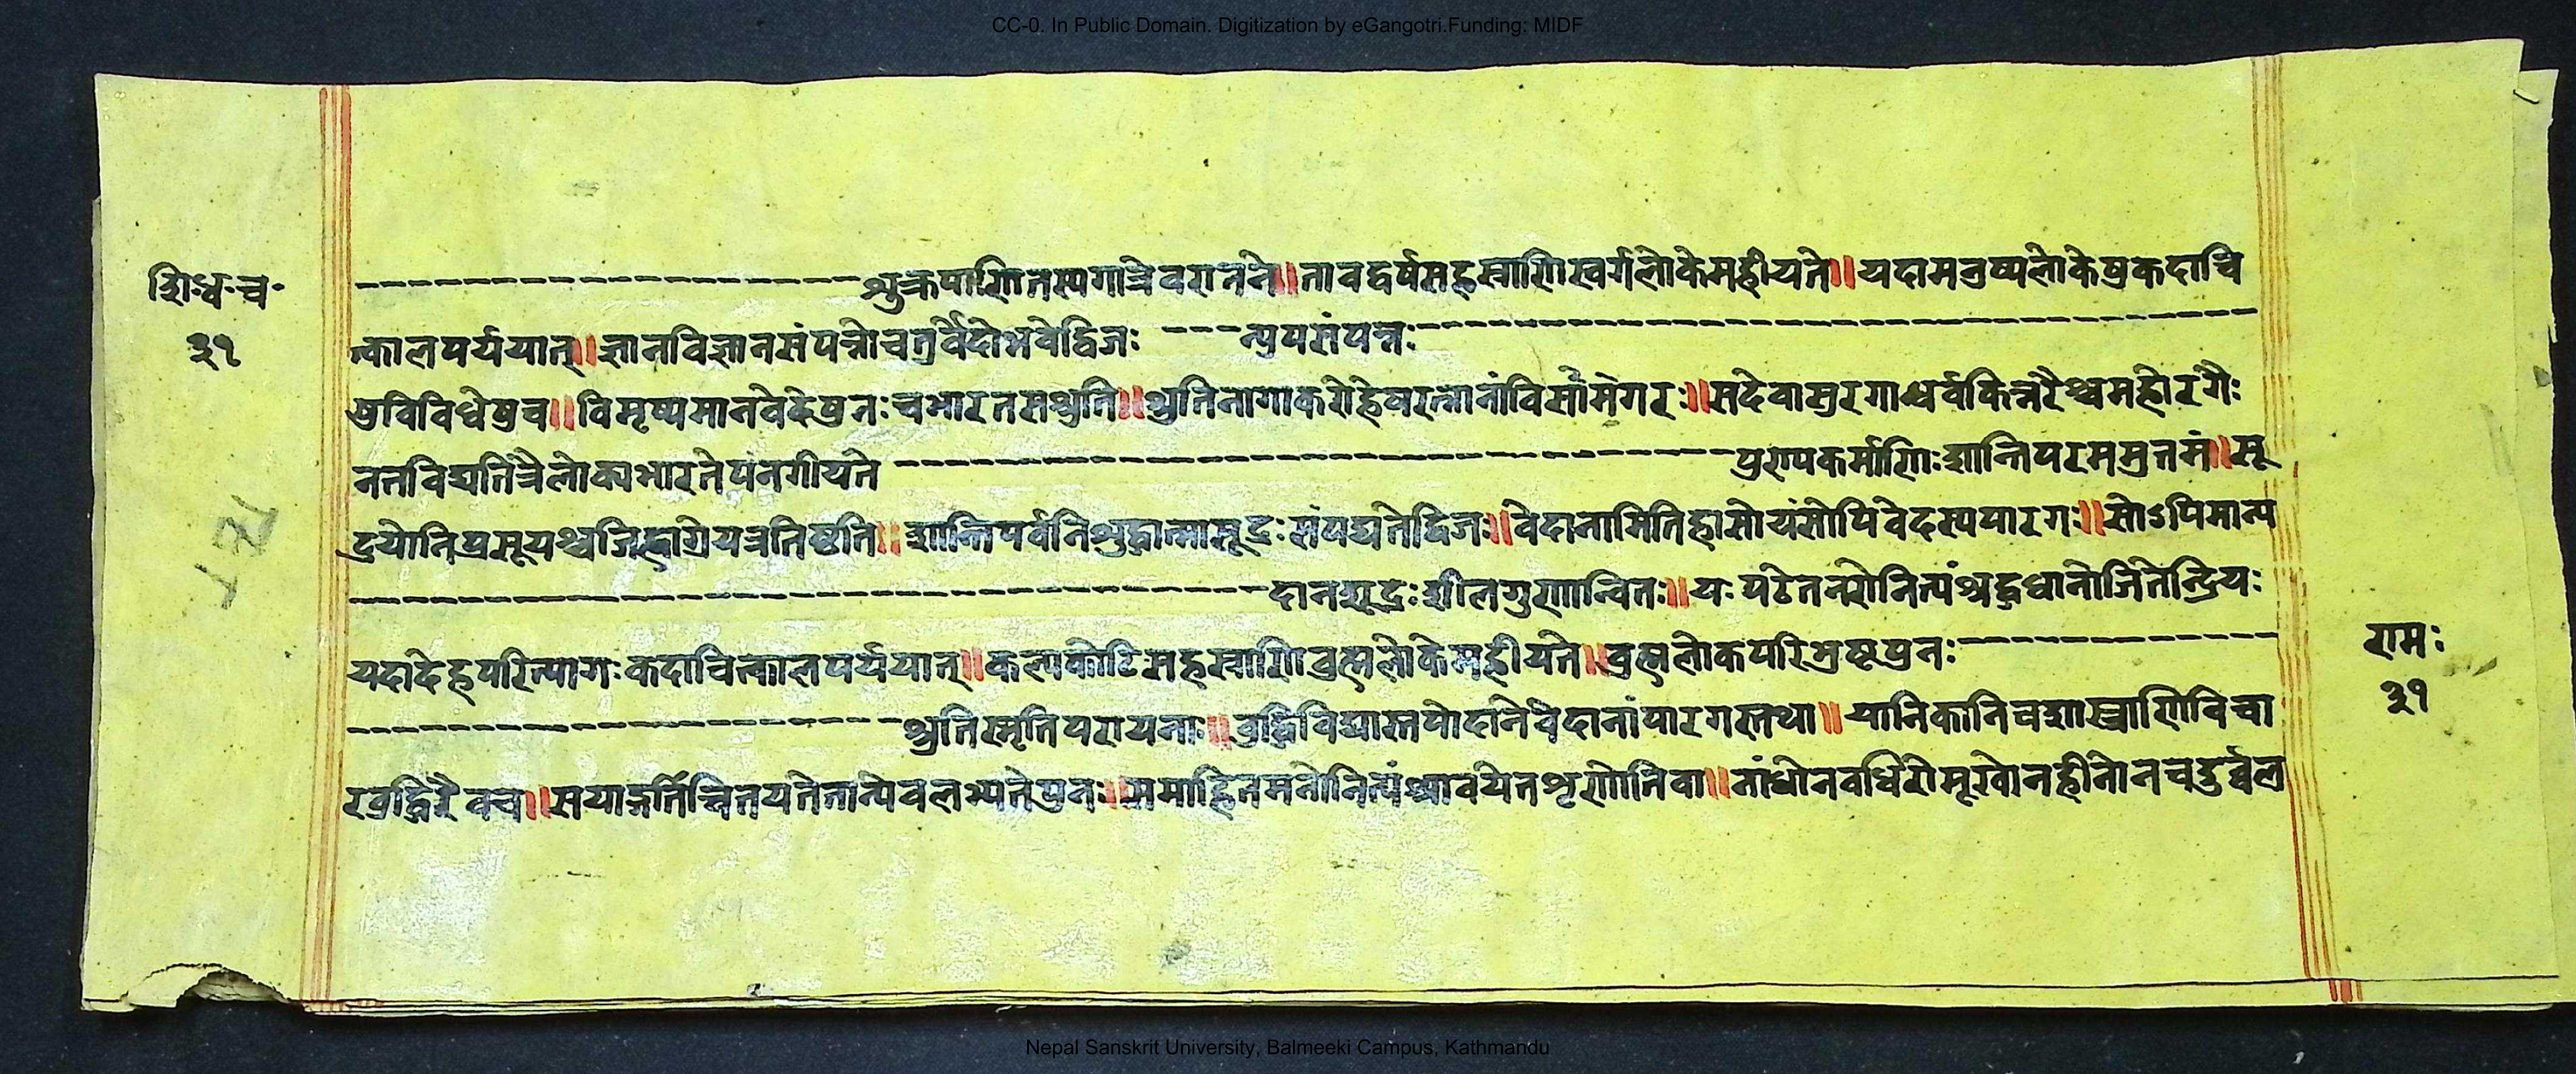 CC-0. In Public Domain. Digitization by eGangotri.Funding: MIDF
शि॰ध॰च॰
३१
---शुक्रपाणितस्यगात्रेवरानने॥तावद्वर्षसहस्राणिस्वर्गलोकेमहीयते॥यदामनुष्यलोकेषुकदाचि
त्कालपर्ययात्॥ज्ञानविज्ञानसंपन्नोचतुर्वेदोभवेद्विजः ---न्युपसंपन्नः---
षुविविधेषुच॥विमृष्यमानवेदेषुनःचभारतसश्रुति॥श्रुतिनागाकरोह्येषरत्नानांविसौसगरः॥सदेवासुरगाधर्वकिन्नरैश्चमहोरगैः
नतविद्यतित्रैलोक्यभारतेपनगीयते ---पुराणकर्माणिःशान्तिपरमम्रुतमं॥सू
द्रयोनिप्रसूयश्चजिह्वाग्रेयत्रतिष्ठति॥शान्तिपर्वनिशुद्धात्मासूद्रःसंपद्यतेद्विजः॥वेदानामितिहासोयंसोपिवेदस्यपारगः॥सोऽपिमान्य
---दानशूद्रःशीलगुणान्वितः॥यःपठेतनरोनित्यंश्रद्दधानोजितेन्द्रियः
यदादेहपरित्यागःकदाचित्कालपर्ययात्॥कल्पकोटिसहस्राणिब्रह्मलोकेमहीयते॥ब्रह्मलोकपरिभ्रष्टपुनः---
---श्रुतिस्मृतिपरायनाः॥बुद्धिविद्यास्तपोदानेवेदानांपारगस्तथा॥यानिकानिचशास्त्राणिविचा
रबुद्धिरेवच॥सयाङ्गर्तिचितयतेतान्येवलभ्यतेपुनः॥समाहितमनोनित्यंश्रावयेतशृणोतिवा॥नांधोनवधिरोमूखोनहीनोनचदुर्व्वल
रामः
३१
Nepal Sanskrit University, Balmeeki Campus, Kathmandu